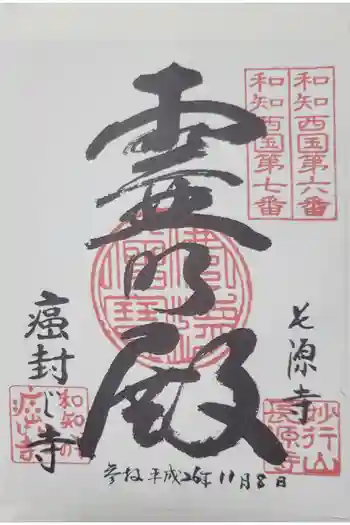 和知西国第六番
和知西国第七番
長源寺
霊明殿
癌封じ寺
妙行山
長源寺
和知の
参拝 平成26年11月8日